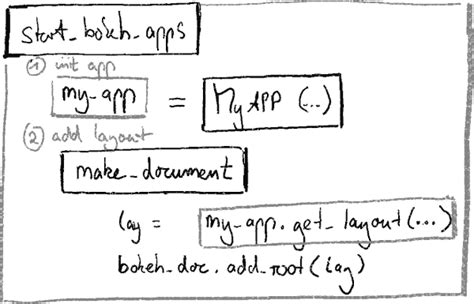 start_bokeh_apps
① init app
my-app = MyAPP (...)
② add layout
make_document
lay = my-app.get_layout(...)
bokeh_doc.add_root(lay)